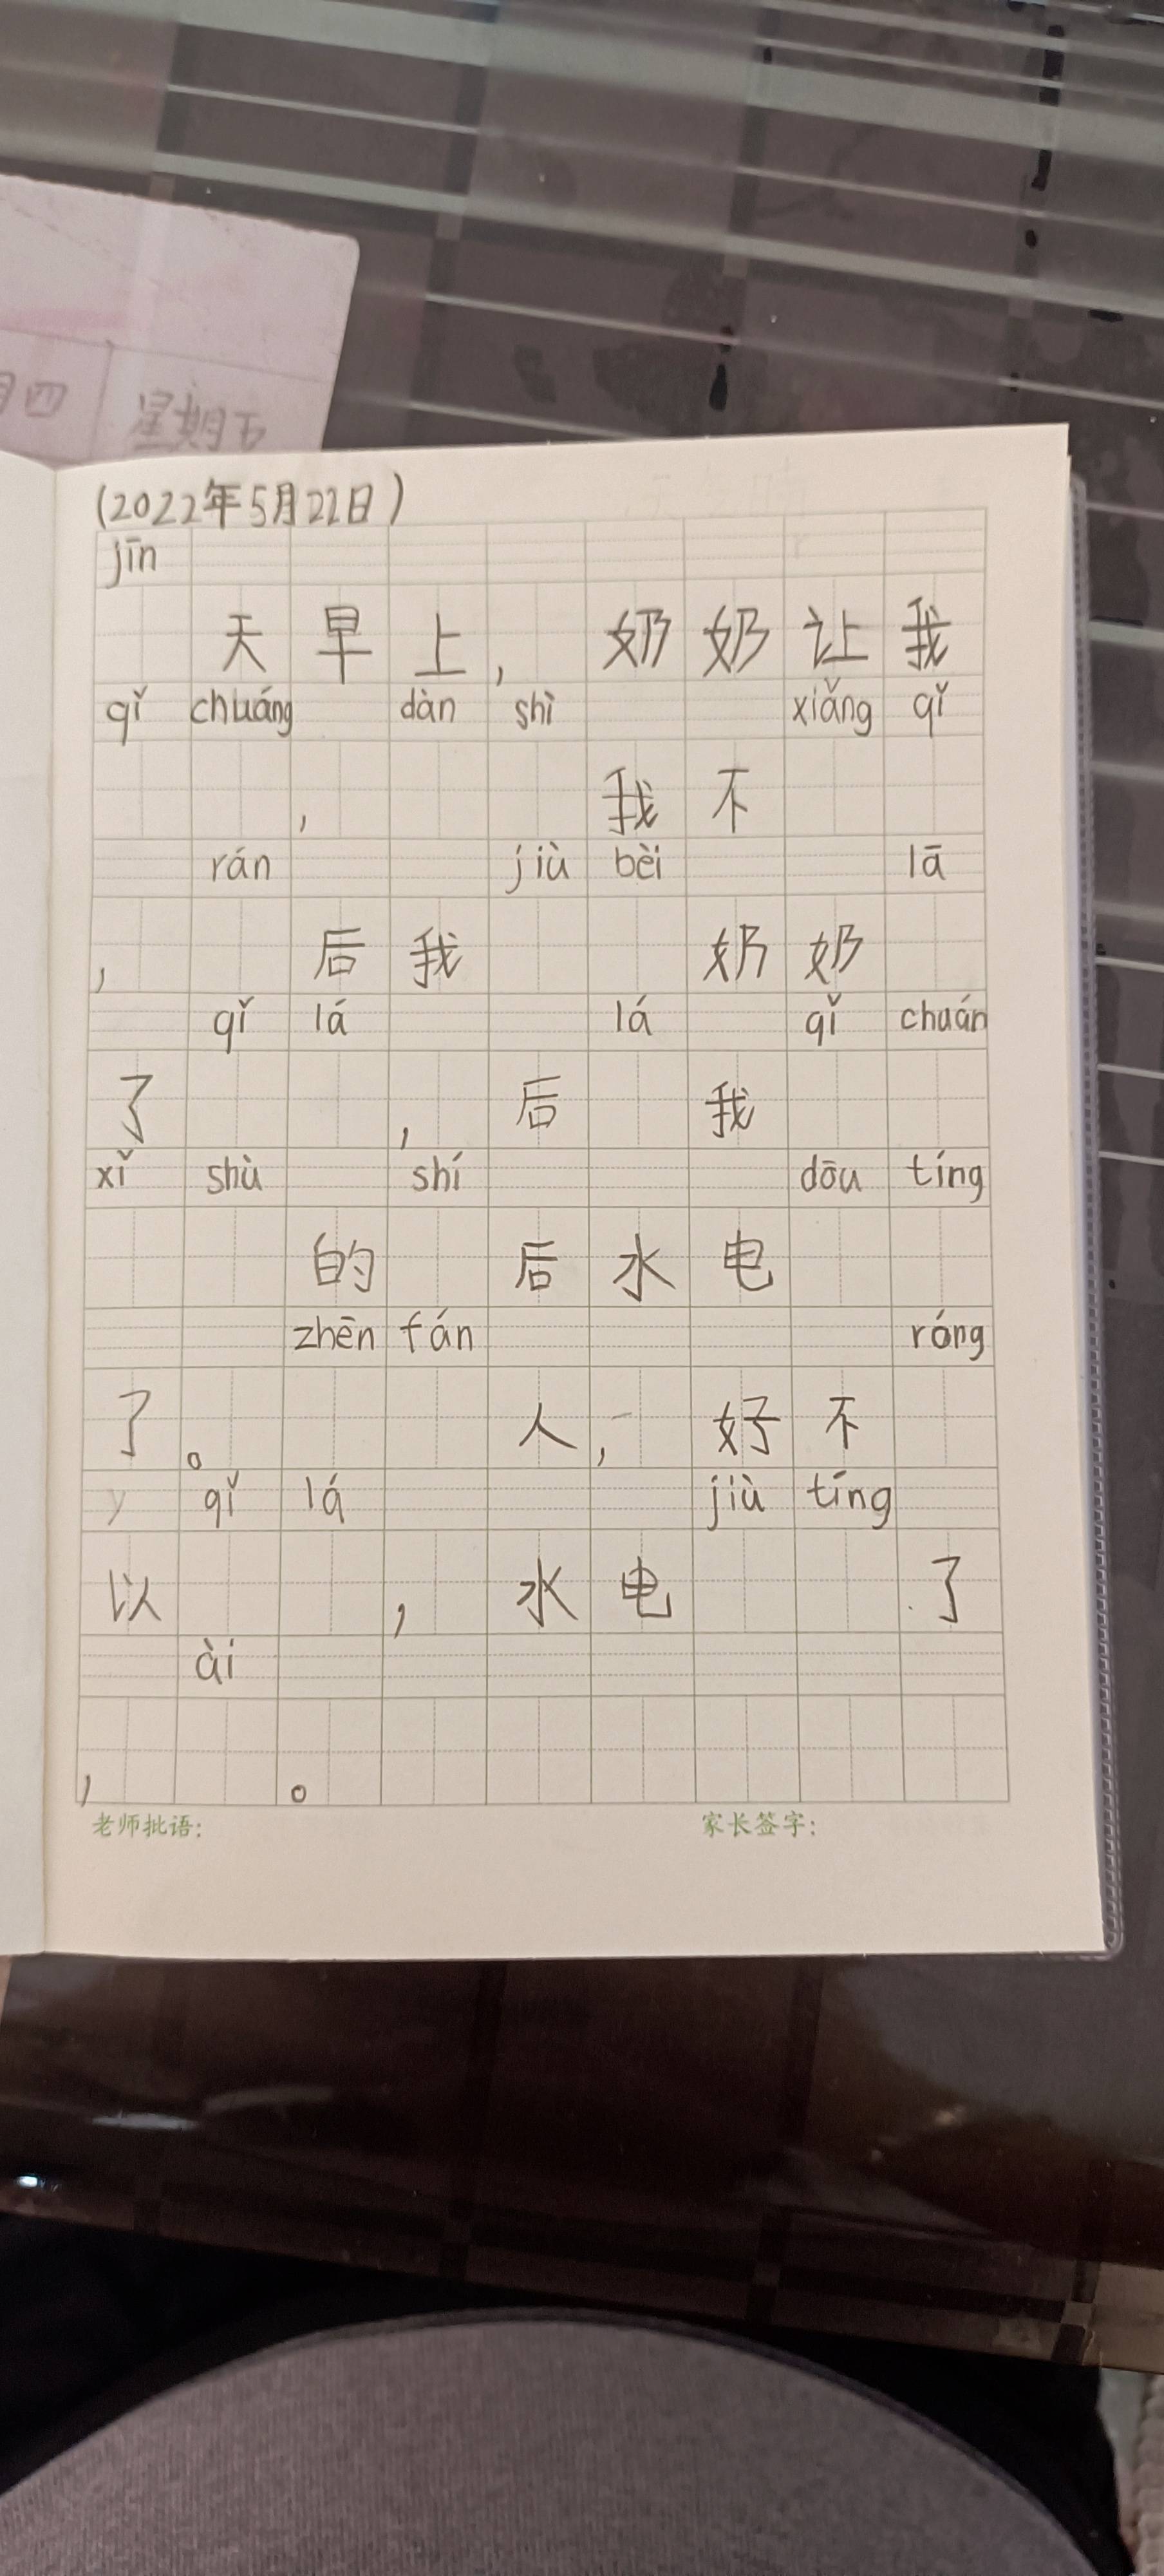 月四 星期五
(2022年5月22日)
jīn
天早上，奶奶让我
qǐ chuáng dàn shì xiǎng qǐ
，我不
rán jiù bèi lā
，后我奶奶
qǐ lá lá qǐ chuán
了，后我
xǐ shù shí dōu tíng
的后水电
zhēn fán róng
了。人，好不
y qǐ lá jiù tíng
以，水电了
ài
，。
老师批语： 家长签字：